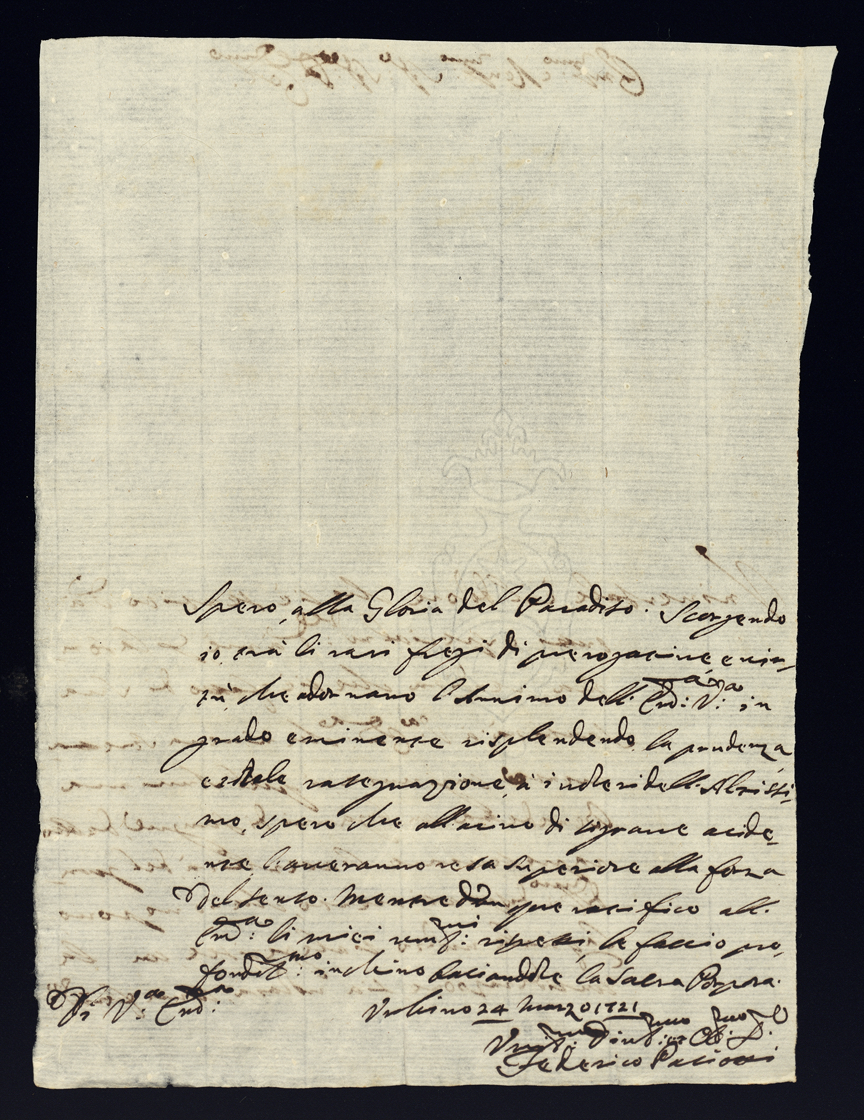 Spero, alla Gloria del Paradiso. Scorgendo
io trà li rari fregi di prerogative e vir-
tù, che adornano l'Animo dell'Em:za V:ra in
grado eminente risplendendo la prudenza,
e totale rassegnazione à voleri dell'Altissi-
mo, spero che all'arivo di sì grave acide-
nte l'averanno resa superiore alla forza
del senso. Mentre dunque ratifico all'
Em:za li miei rev:mi rispetti, le faccio pro-
fondiss:mo inchino baciandole la Sacra Porpora.
Di V:ra Em:za Urbino 24 Marzo 1721
Um:mo Div:mo Ob:mo S:re
Federico Pacioni